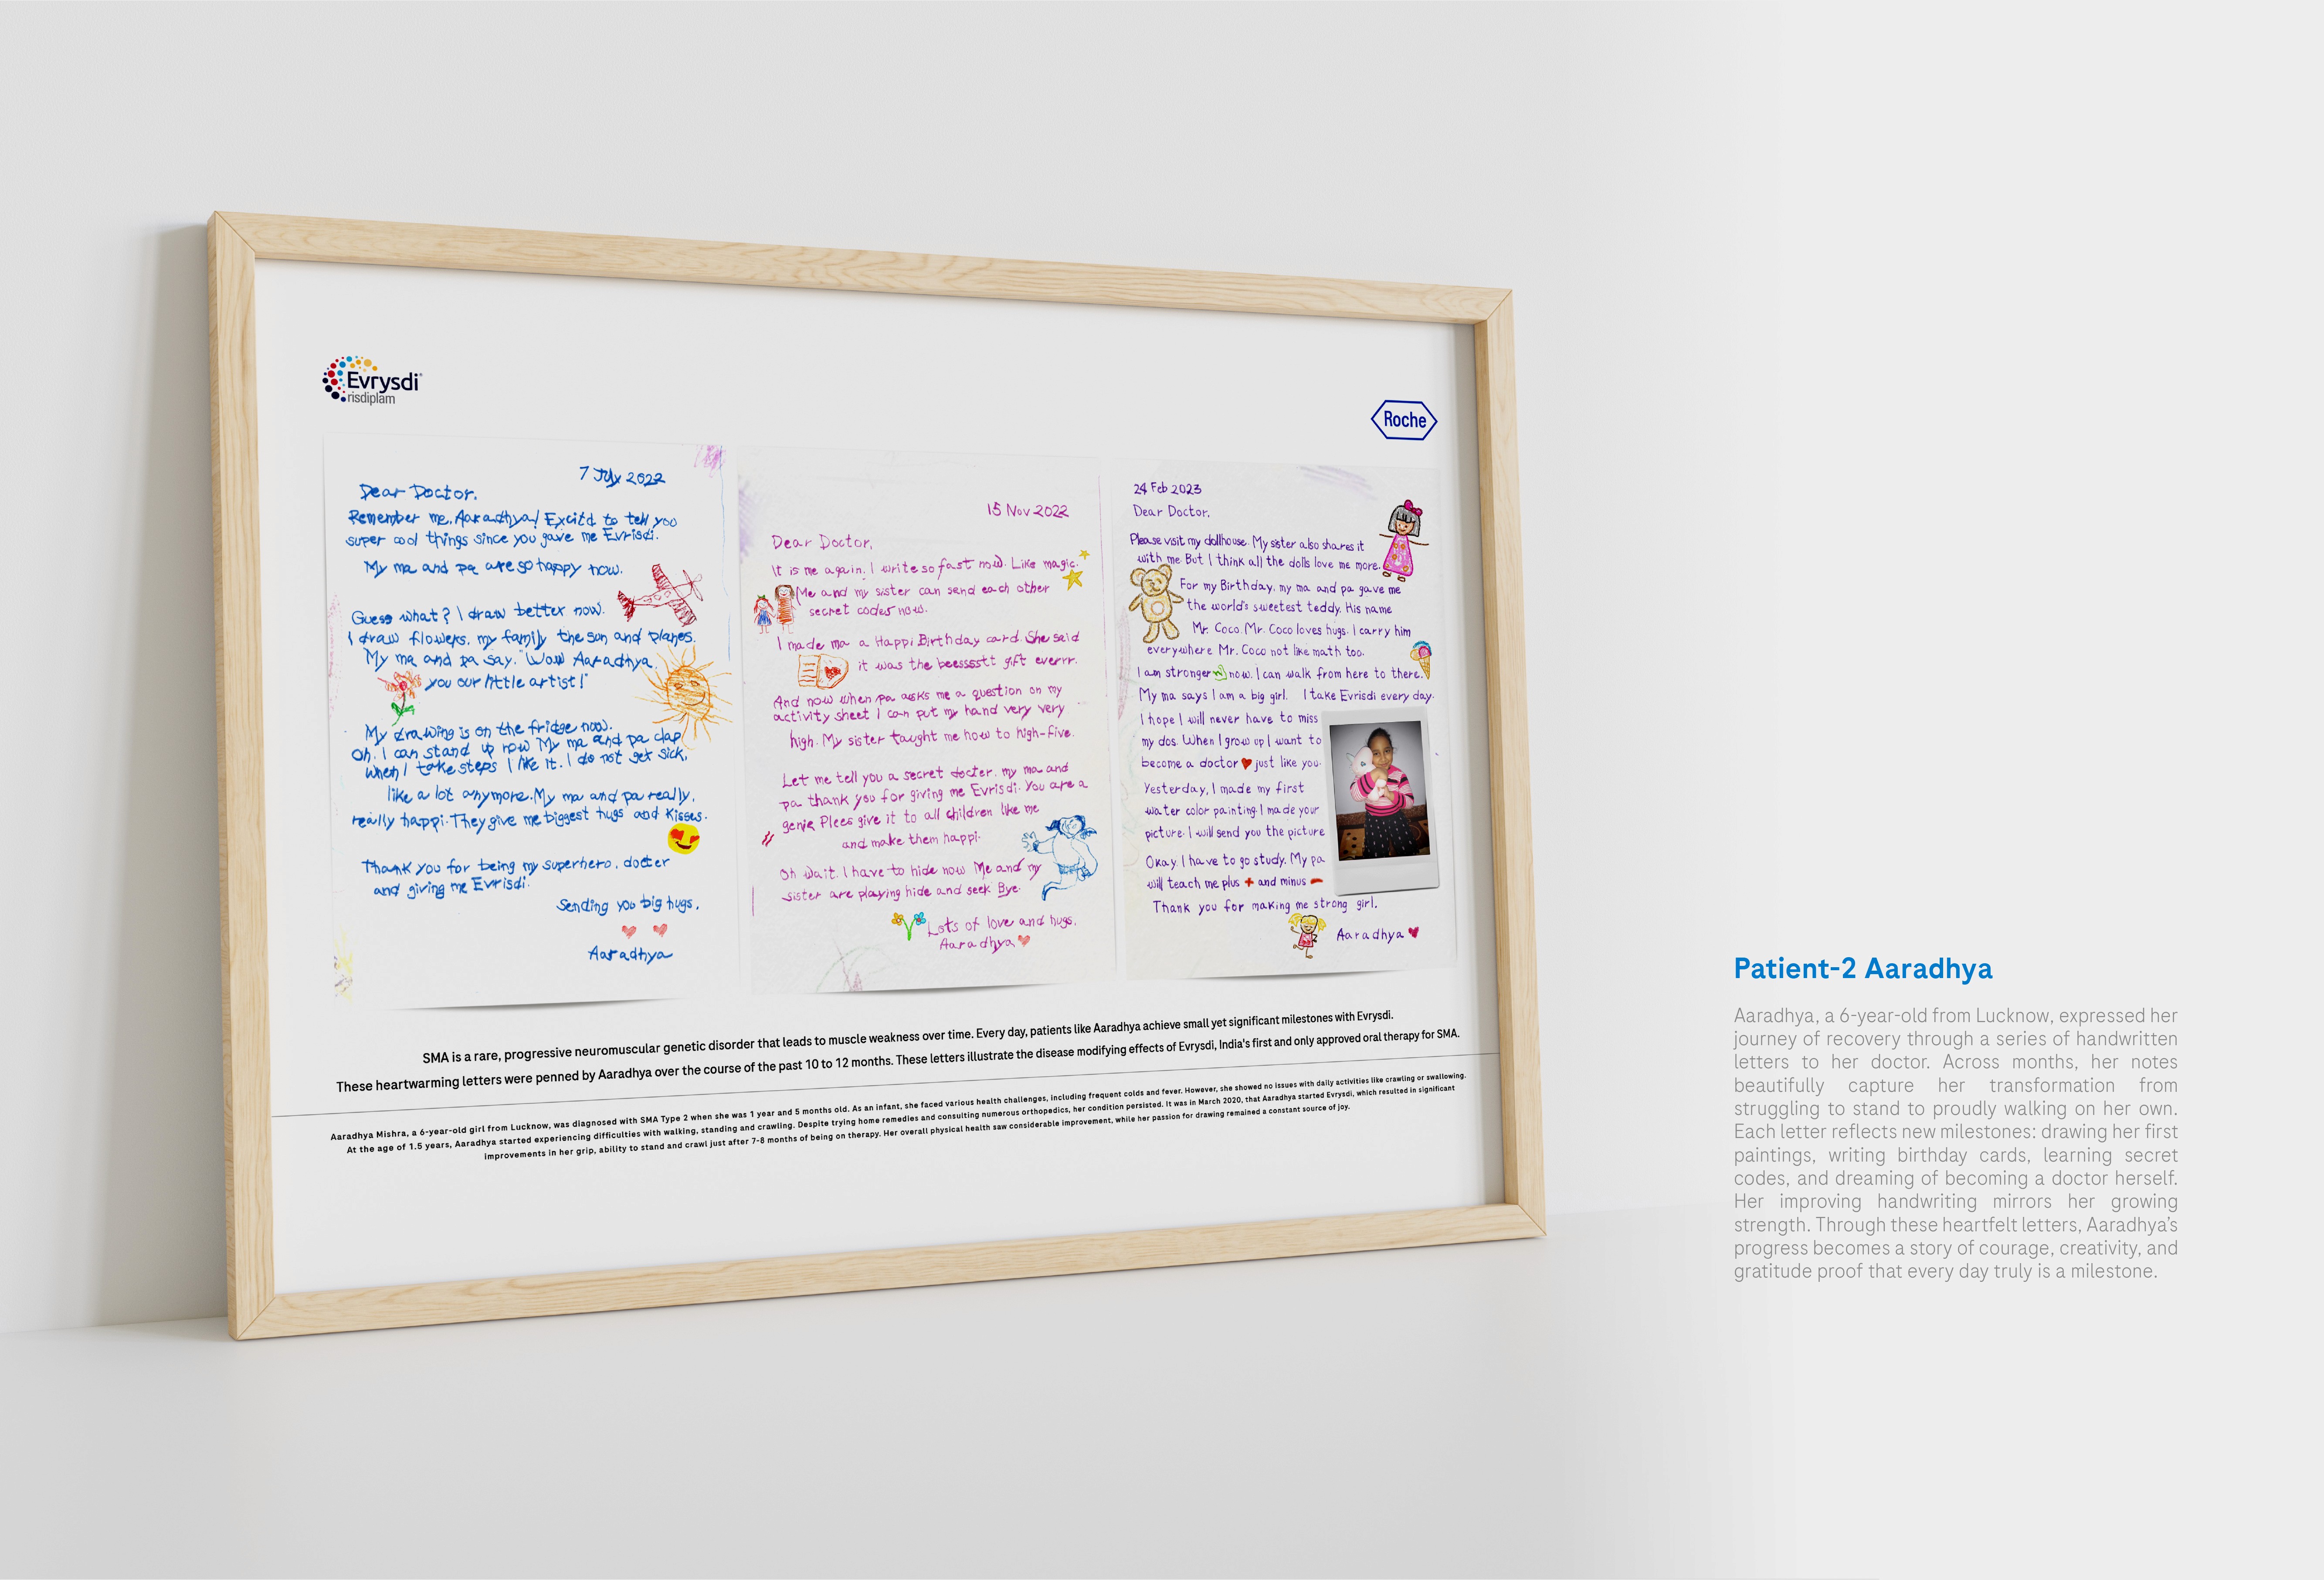 Evrysdi®
risdiplam
Roche
7 July 2022
Dear Doctor,
Remember me, Aaradhya! Excitd to tell you
super cool things since you gave me Evrisdi.
My ma and pa are so happy now.
Guess what? I draw better now.
I draw flowers, my family the son and planes.
My ma and pa say, "Wow Aaradhya
you our little artist!"
My drawing is on the fridge now.
Oh, I can stand up now My ma and pa clap
when I take steps I like it. I do not get sick,
like a lot anymore. My ma and pa really,
really happi. They give me biggest hugs and kisses.
Thank you for being my superhero, docter
and giving me Evrisdi.
Sending you big hugs,
Aaradhya
15 Nov 2022
Dear Doctor,
It is me again. I write so fast now. Like magic.
Me and my sister can send each other
secret codes now.
I made ma a Happi Birthday card. She said
it was the beesssstt gift everrr.
And now when pa asks me a question on my
activity sheet I can put my hand very very
high. My sister taught me how to high-five.
Let me tell you a secret docter, my ma and
pa thank you for giving me Evrisdi. You are a
genie Plees give it to all children like me
and make them happi.
Oh wait. I have to hide now Me and my
sister are playing hide and seek. Bye.
Lots of love and hugs,
Aaradhya
24 Feb 2023
Dear Doctor,
Please visit my dollhouse. My sister also shares it
with me But I think all the dolls love me more.
For my Birthday, my ma and pa gave me
the world's sweetest teddy. His name
Mr. Coco. Mr. Coco loves hugs. I carry him
everywhere Mr. Coco not like math too.
I am stronger now. I can walk from here to there.
My ma says I am a big girl. I take Evrisdi every day.
I hope I will never have to miss
my dos. When I grow up I want to
become a doctor just like you.
Yesterday, I made my first
water color painting. I made your
picture. I will send you the picture
Okay, I have to go study. My pa
will teach me plus + and minus -
Thank you for making me strong girl.
Aaradhya
SMA is a rare, progressive neuromuscular genetic disorder that leads to muscle weakness over time. Every day, patients like Aaradhya achieve small yet significant milestones with Evrysdi.
These heartwarming letters were penned by Aaradhya over the course of the past 10 to 12 months. These letters illustrate the disease modifying effects of Evrysdi, India's first and only approved oral therapy for SMA.
Aaradhya Mishra, a 6-year-old girl from Lucknow, was diagnosed with SMA Type 2 when she was 1 year and 5 months old. As an infant, she faced various health challenges, including frequent colds and fever. However, she showed no issues with daily activities like crawling or swallowing.
At the age of 1.5 years, Aaradhya started experiencing difficulties with walking, standing and crawling. Despite trying home remedies and consulting numerous orthopedics, her condition persisted. It was in March 2020, that Aaradhya started Evrysdi, which resulted in significant
improvements in her grip, ability to stand and crawl just after 7-8 months of being on therapy. Her overall physical health saw considerable improvement, while her passion for drawing remained a constant source of joy.
Patient-2 Aaradhya
Aaradhya, a 6-year-old from Lucknow, expressed her
journey of recovery through a series of handwritten
letters to her doctor. Across months, her notes
beautifully capture her transformation from
struggling to stand to proudly walking on her own.
Each letter reflects new milestones: drawing her first
paintings, writing birthday cards, learning secret
codes, and dreaming of becoming a doctor herself.
Her improving handwriting mirrors her growing
strength. Through these heartfelt letters, Aaradhya's
progress becomes a story of courage, creativity, and
gratitude proof that every day truly is a milestone.